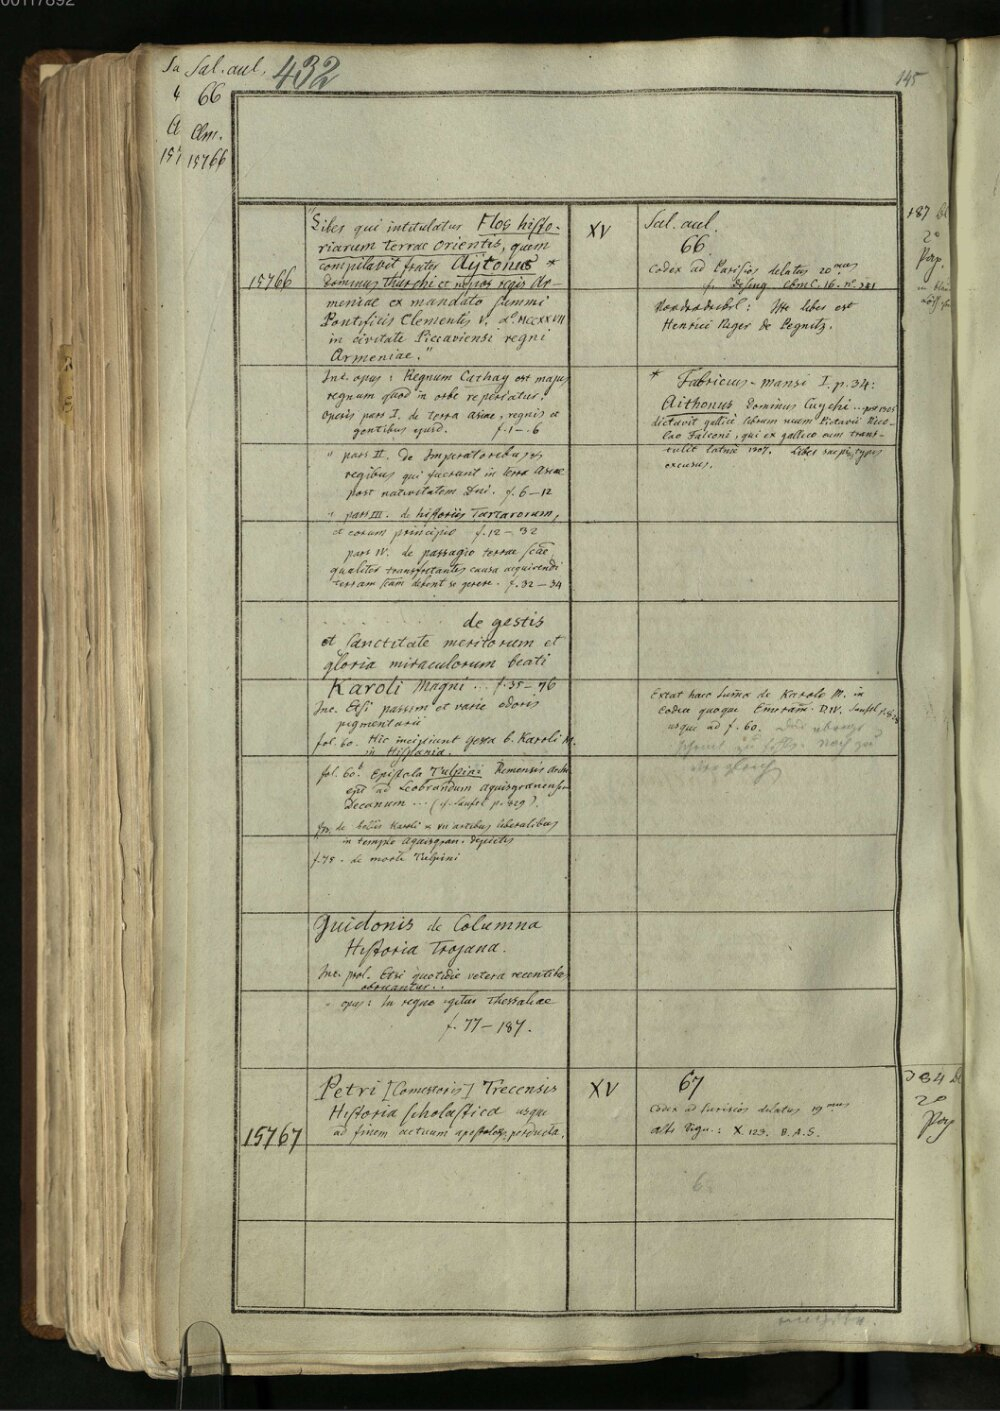 00117892
Sal. aul.
66
Clm.
15766
432
145
15766
"Liber qui intitulatur Flos histo-
riarum terrae orientis, quem
compilavit frater Aytonus *
dominus Churchi et nepos regis Ar-
meniae ex mandato summi
Pontificis Clementis V. a. MCCXXVII
in civitate Piccaviensi regni
Armeniae."
Inc. opus: Regnum Cathay est majus
regnum quod in orbe reperiatur.
operis pars I. de terra asiae, regnis et
gentibus ejusd. f. 1-6
" pars II. de Imperatoribus et
regibus qui fuerunt in terra asiae
post nativitatem Dni. f. 6-12
" pars III. de historiis Tartarorum,
et eorum principio f. 12-32
pars IV. de passagio terrae scae
qualiter transfretantes causa acquirendi
terram scam debent se gerere. f. 32-34
XV
Sal. aul.
66
codex ad Parisios delatus 20mus
Iste liber est
Henrici Riger de Pegnitz.
* Fabricius-Mansi I. p. 34:
Aithonus dominus Curchi
dictavit gallice librum suum Pictavii Nico-
lao Falconi, qui ex gallico eum trans-
tulit latine 1307. Liber saepius typis
excusus.
187 Bl
2°
Pap.
de gestis
et sanctitate meritorum et
gloria miraculorum beati
Karoli Magni ... f. 35-76
Inc. Etsi passim et varie odoris
pigmentarii
fol. 60. Hic incipiunt gesta b. Karoli M.
in Hispania.
fol. 60b. Epistola Tulpini Remensis archi
epi ad Leobrandum aquisgranensem
Decanum ...
de bellis Karoli & VII artibus liberalibus
in templo Aquisgran. depictis
f. 75. de morte Tulpini
Extat haec suma de Karolo M. in
codice quoque Emeram.
usque ad f. 60.
Guidonis de Columna
Historia Trojana.
Inc. prol. Etsi quotidie vetera recentibus
obruantur..
" opus: In regno igitur Thessaliae
f. 77-187.
15767
Petri [Comestoris] Trecensis
Historia scholastica usque
ad finem actuum apostolor. producta.
XV
67
codex ad Parisios delatus 19mus
X. 123. B.A.S.
2°
Pap
6